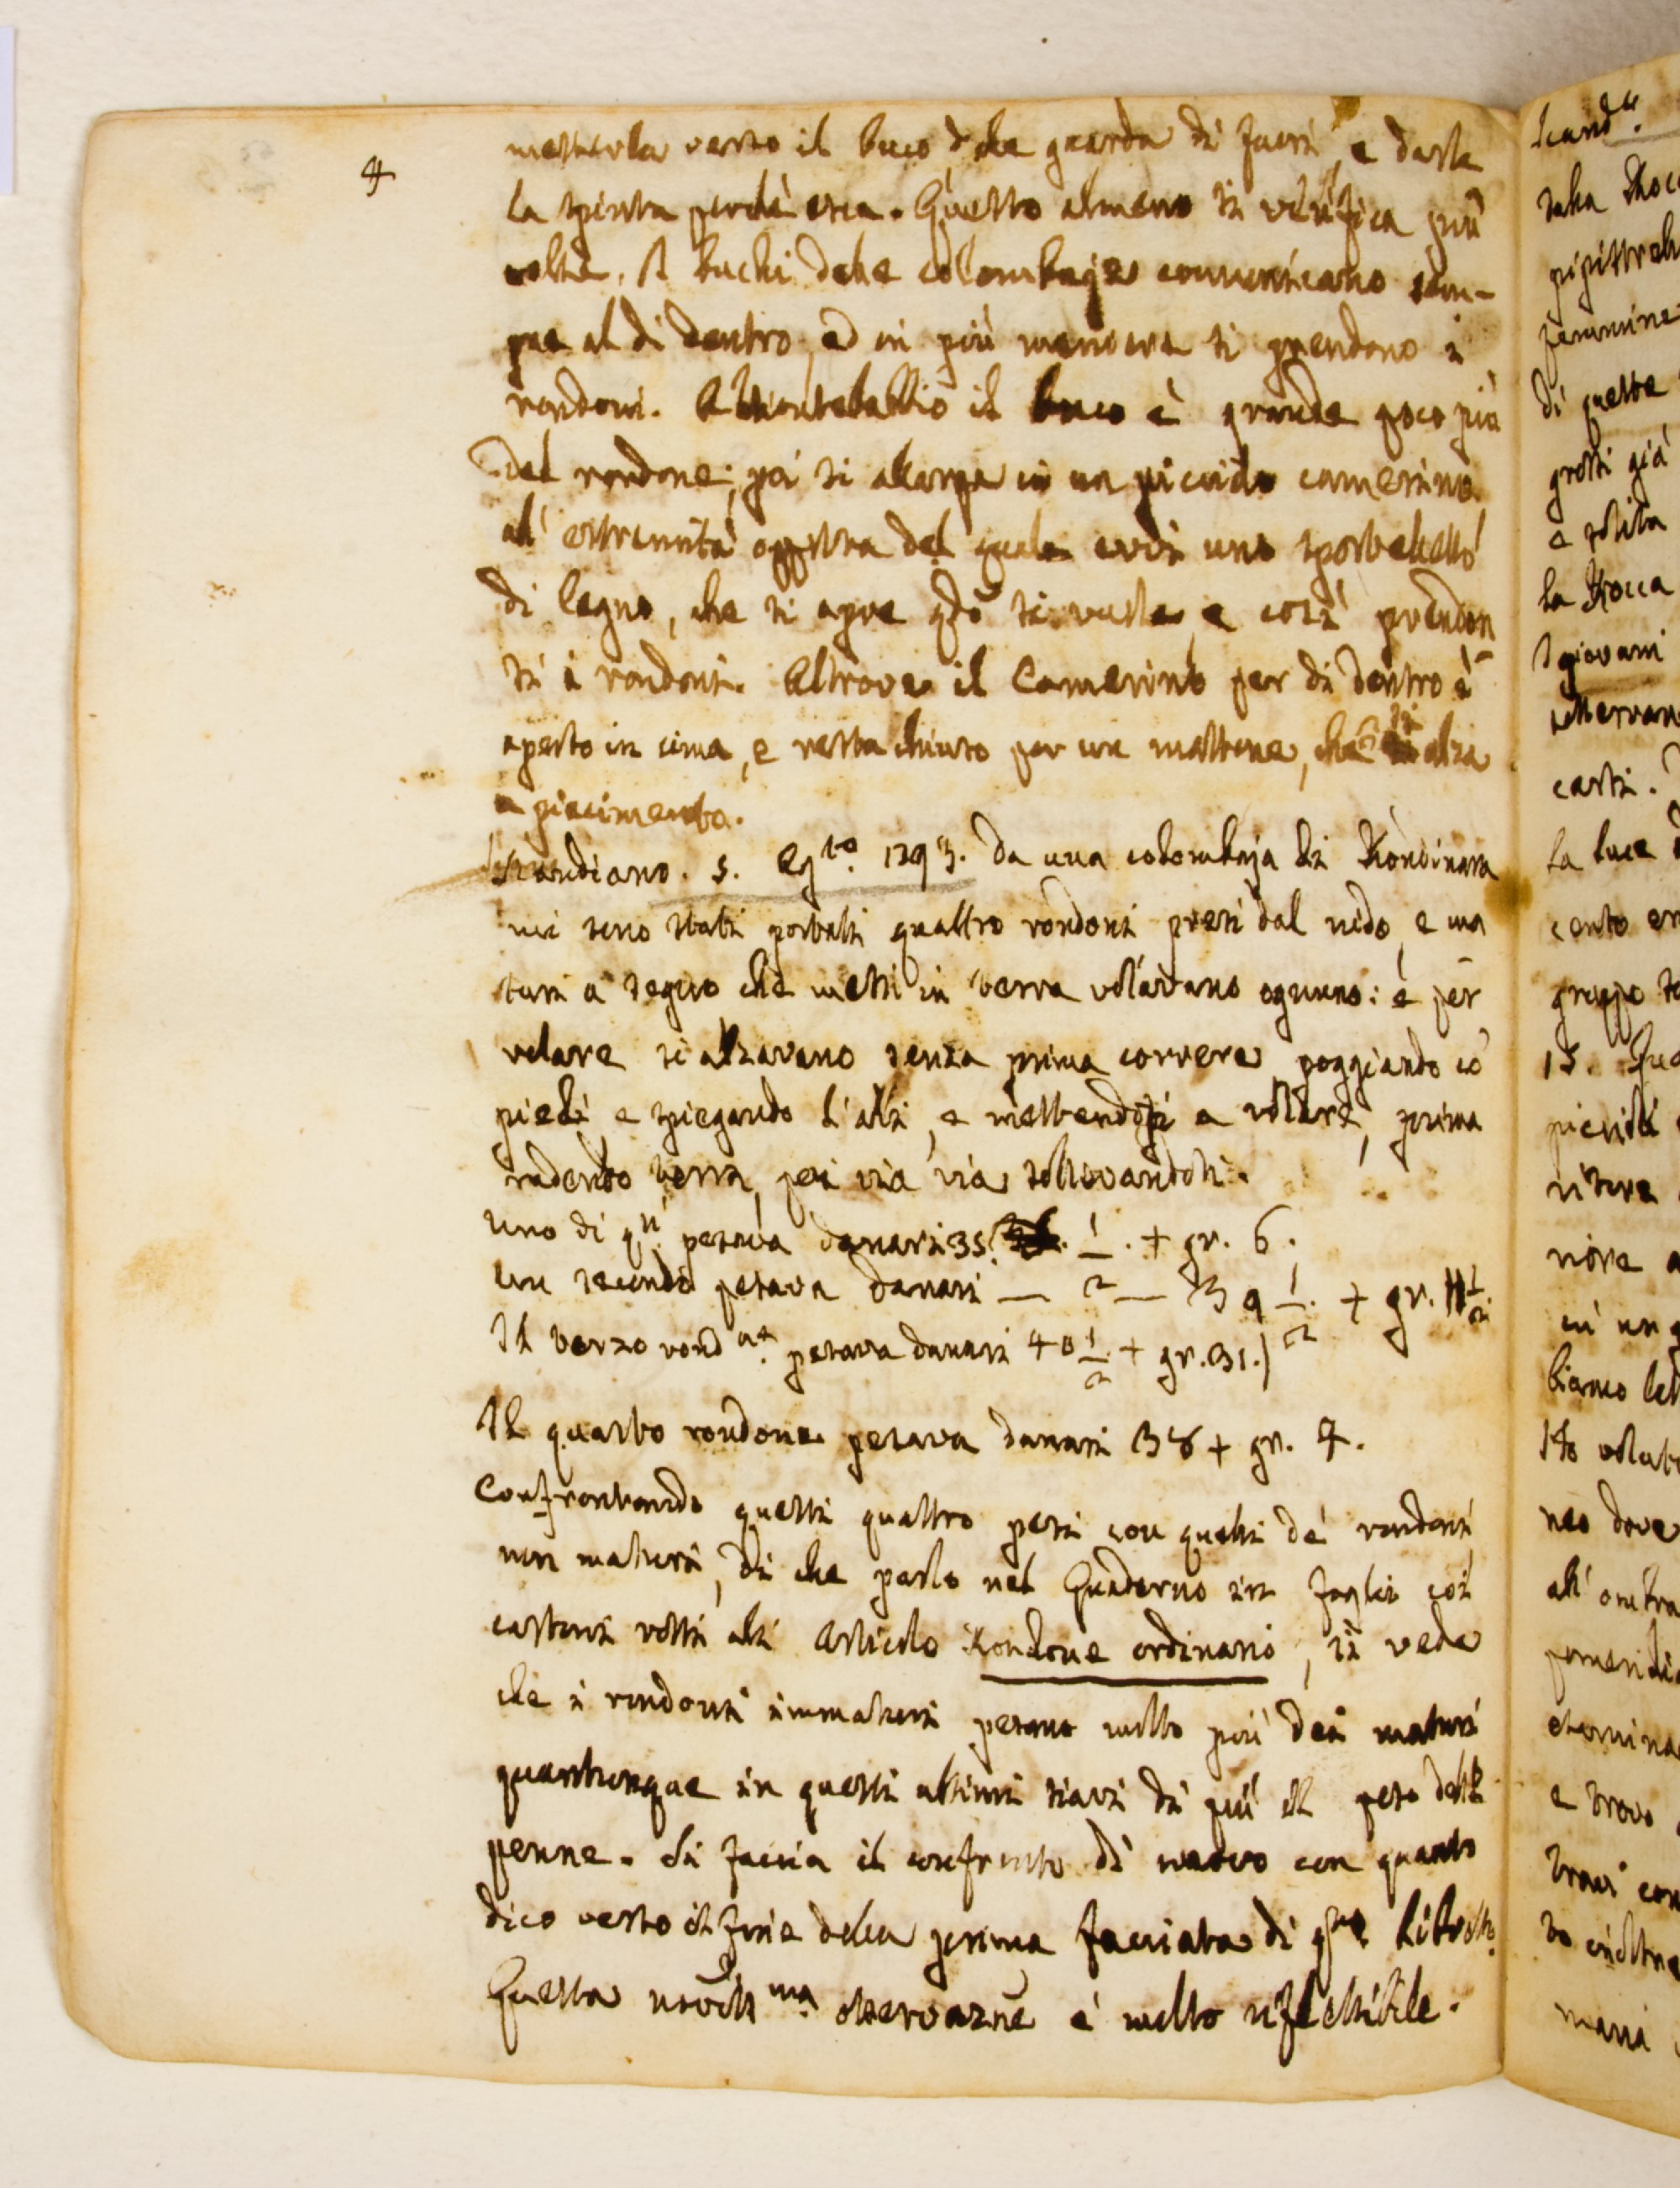 4
metterla verso il buco, che guarda di fuori, e darle
la spinta perchè esca. Questo almeno si verifica più
volte. I buchi delle colombaje comunicano sem-
pre al di dentro, ed in più maniere si prendono i
rondoni. A Montebabbio il buco è grande poco più
del rondone; poi si allarga in un piccolo camerino
all'estremità opposta del quale evvi uno sportelletto
di legno, che si apre qdo si vuole, e così prendon
si i rondoni. Altrove il Camerino per di dentro è
aperto in cima, e resta chiuso per un mattone, che si alza
a piacimento.
Scandiano. 5. Ag.to 1793. Da una colombaja di Rondinara
mi sono stati portati quattro rondoni presi dal nido, e ma
turi a segno che messi in terra volavano ognuno: e per
volare si alzavano senza prima correre, poggiando co'
piedi e spiegando l'ali, e mettendosi a volare, prima
radendo terra, poi via via sollevandosi.
Uno di qti pesava danari 35. 1/2. + gr. 6.
Un secondo pesava danari — 39 1/2. + gr. 11 1/2.
Il terzo rond.ne pesava danari 40 1/2. + gr. 31.
Il quarto rondone pesava danari 38 + gr. 4.
Confrontando questi quattro pesi con quelli de' rondoni
non maturi, di che parlo nel Quaderno in foglio coi
cartoni rossi all' Articolo Rondone ordinario, si vede
che i rondoni immaturi pesano molto più dei maturi
quantunque in questi ultimi siavi di più il peso delle
penne. Si faccia il confronto di nuovo con quanto
dico verso il fine della prima facciata di qto Libretto.
Questa novissma osservazne è molto riflessibile.
Scand.o
gruppo
15.
e trovo